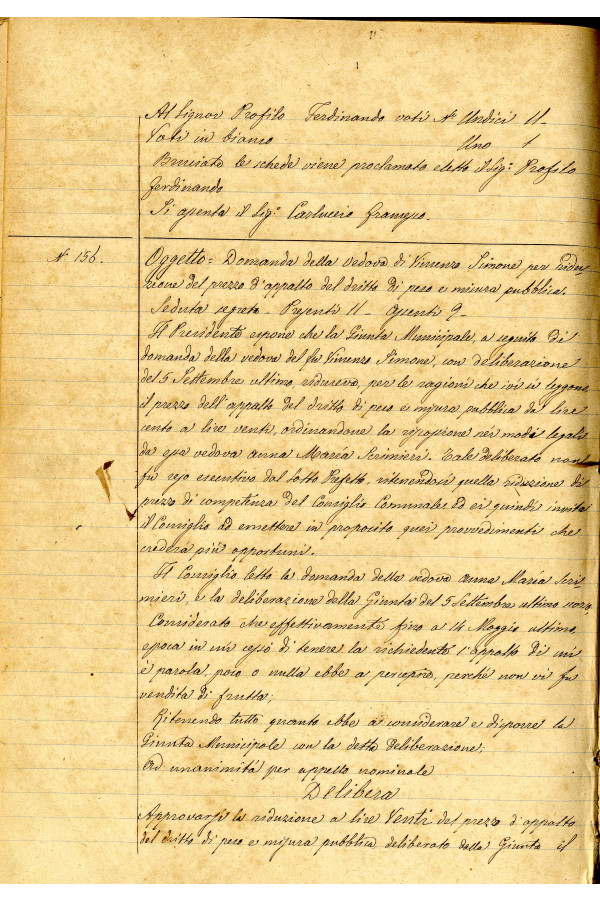 Al Signor Profilo Ferdinando voti N° Undici 11
Voti in bianco Uno 1
Bruciate le schede viene proclamato eletto il Sig: Profilo
Ferdinando
Si assenta il Sig: Carluccio
N° 156. Oggetto = Domanda della vedova di Vincenzo Simone per ridu-
zione del prezzo d'appalto del dritto di peso e misura pubblica.
Seduta segreta – Presenti 11 – assenti 9 –
Il Presidente espone che la Giunta Municipale, a seguito di
domanda della vedova del fu Vincenzo Simone, con deliberazione
del 5 Settembre ultimo, riduceva, per le ragioni che ivi si leggono
il prezzo dell'appalto del dritto di peso e misura pubblica da lire
cento a lire venti, ordinandone la riscossione nei modi legali
da essa vedova Anna Maria Scrimieri. Tale deliberato non
fu reso esecutivo dal Sotto Prefetto, ritenendosi quella riduzione di
prezzo di competenza del Consiglio Comunale: ed ei quindi invita
il Consiglio ad emettere in proposito quei provvedimenti che
crederà più opportuni.
Il Consiglio letto la domanda della vedova Anna Maria Scri-
mieri, e la deliberazione della Giunta del 5 Settembre ultimo
Considerato che effettivamente fino a 14 Maggio ultimo
epoca in cui cessò di tenere la richiedente l'appalto di cui
è parola, poco o nulla ebbe a percepire, perchè non vi fu
vendita di frutta;
Ritenendo tutto quanto ebbe a considerare e disporre la
Giunta Municipale con la detta deliberazione;
Ad unanimità per appello nominale
Delibera
Approvarsi la riduzione a lire Venti del prezzo d'appalto
del dritto di peso e misura pubblica deliberato dalla Giunta il